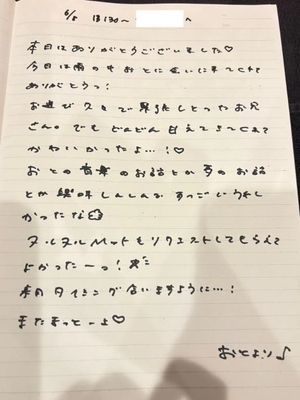 6/5 13:30〜 へ
本日はありがとうございました♡
今日は雨の中おとに会いに来てくれて
ありがとうっ!
お遊び久々で緊張しとったお兄
さん。でもどんどん甘えてきてくれて
かわいかったよ…!♡
おとの音楽のお話とか夢のお話
とか興味しんしんで すっごいうれし
かったな
ヌルヌルMットもリクエストしてもらえて
よかったーっ!
来月タイミング合いますように…!
またまっとーよ♡
おとより♪